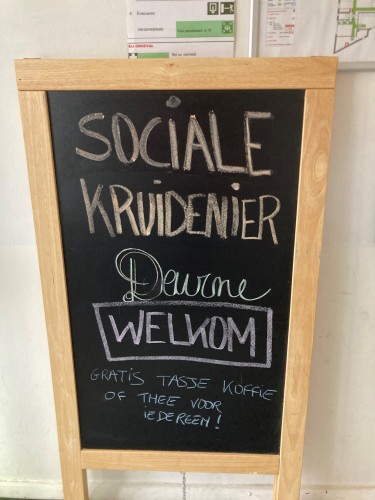 SOCIALE
KRUIDENIER
Deurne
WELKOM
GRATIS TASJE KOFFIE
OF THEE VOOR
IEDEREEN!